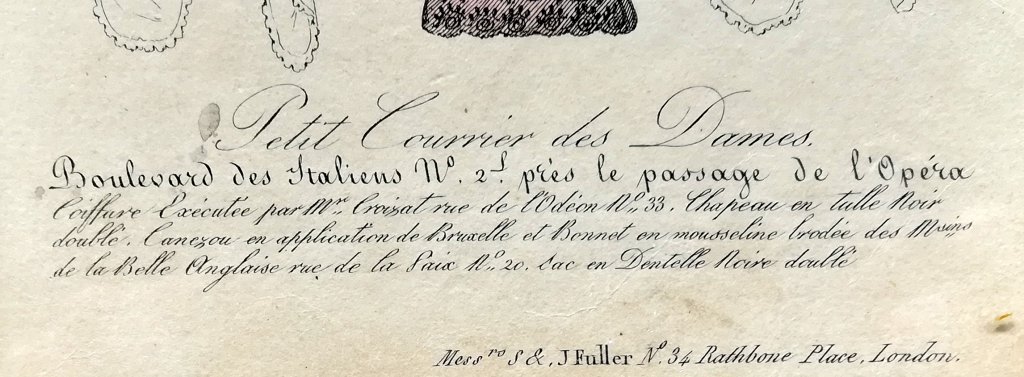 Petit Courrier des Dames.
Boulevard des Italiens Nº. 2ᴸ. près le passage de l'Opéra
Coiffure Exécutée par Mr. Croizat rue de l'Odéon Nº. 33. Chapeau en tulle Noir
doublé. Canezou en application de Bruxelle et Bonnet en mousseline brodée des Msins
de la Belle Anglaise rue de la Paix Nº. 20. Sac en Dentelle Noire doublé
Messrs S &, J Fuller Nº. 34 Rathbone Place, London.